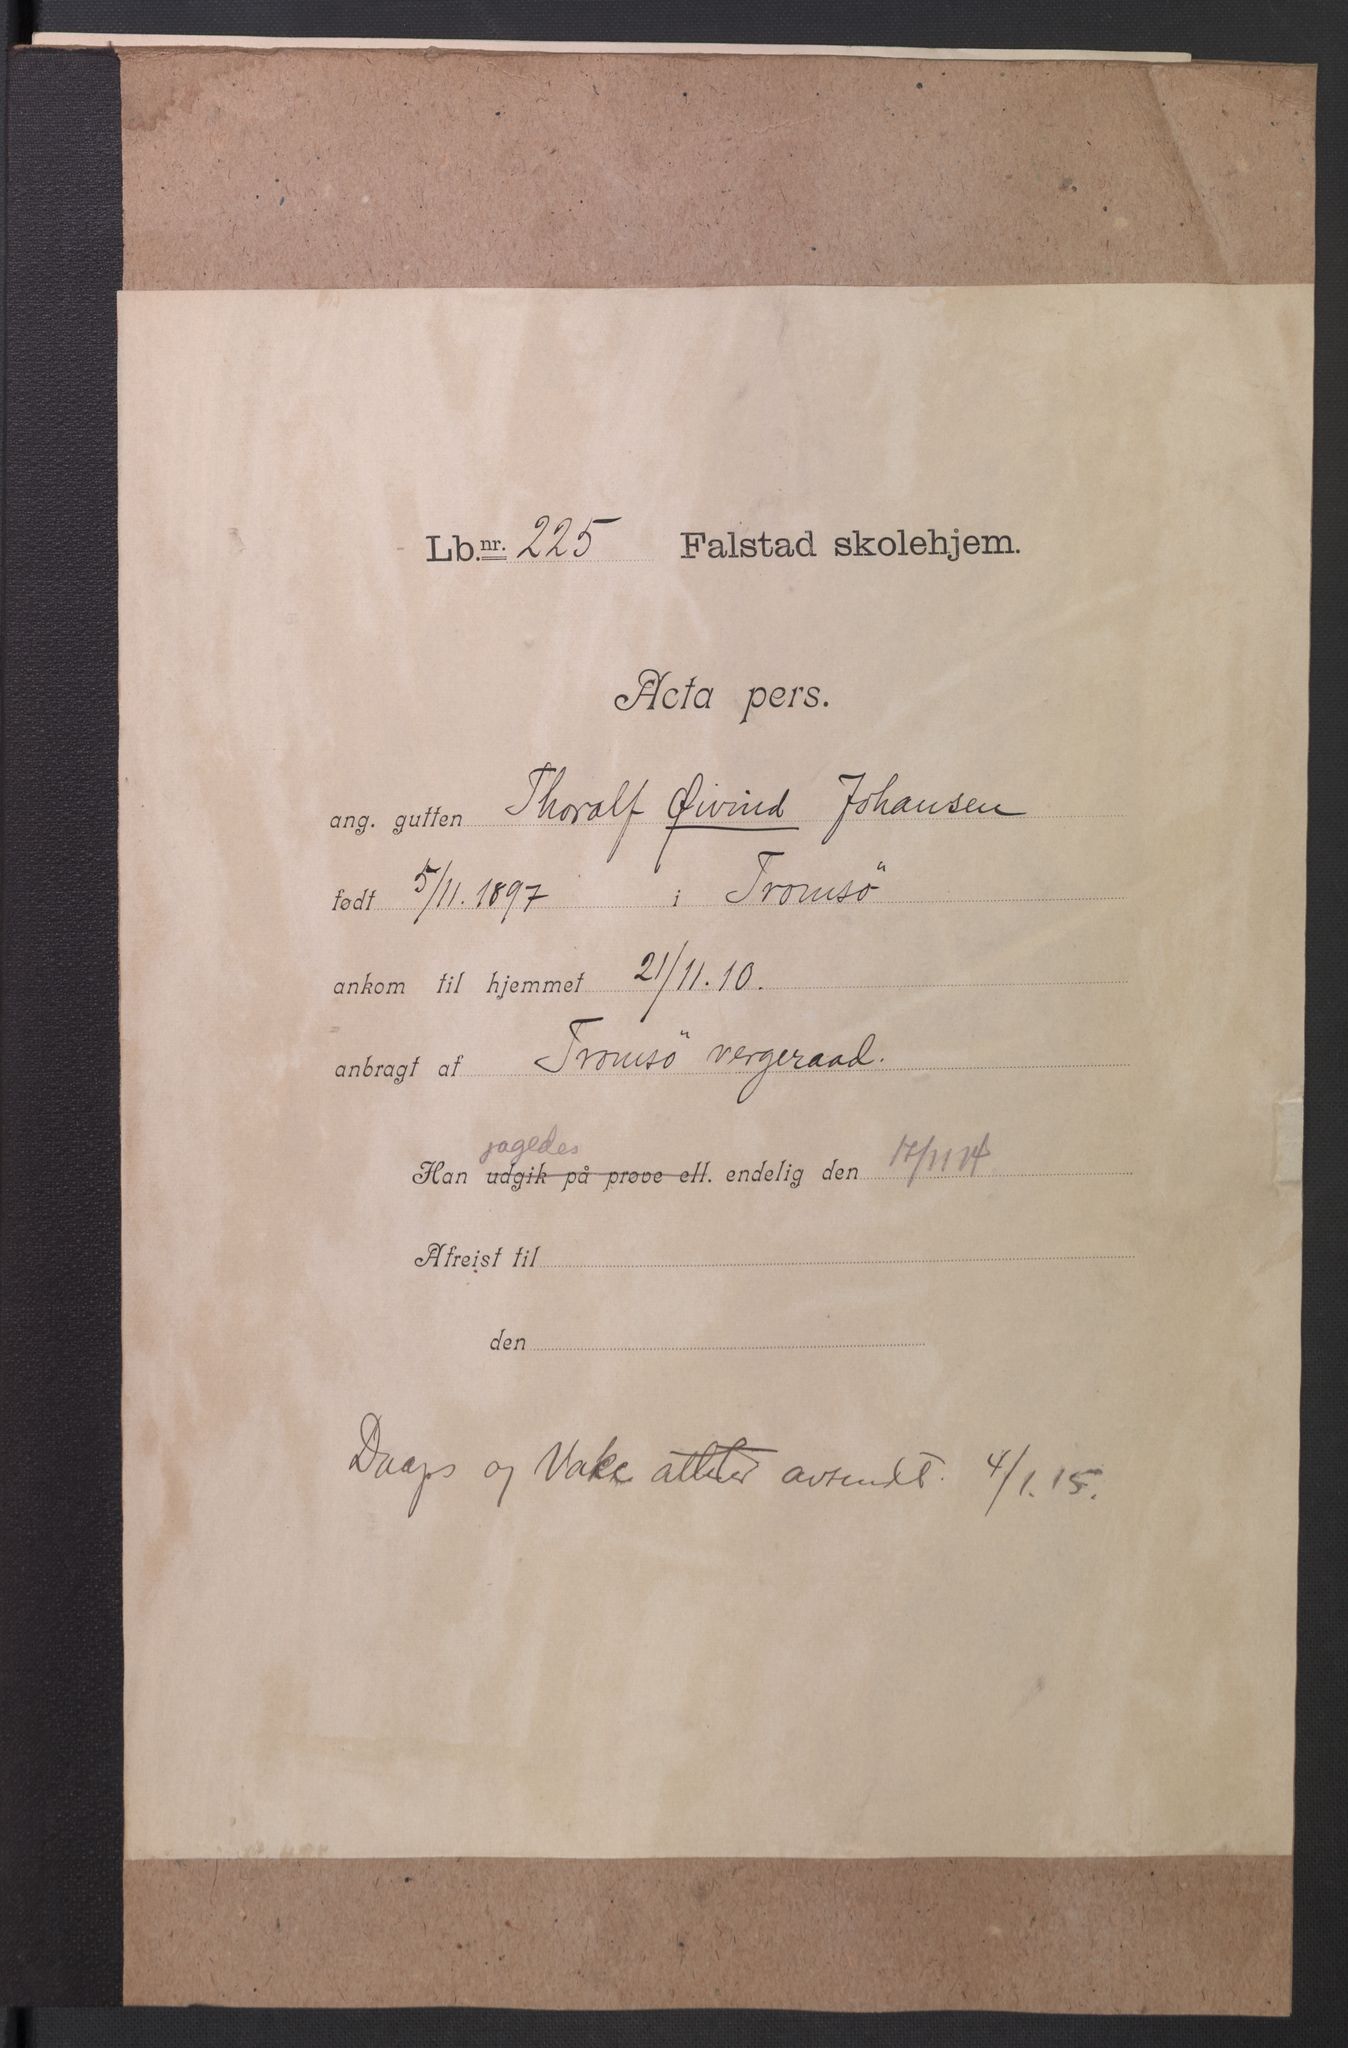 Lb.nr. 225 Falstad skolehjem.
Acta pers.
ang. gutten Thoralf Øivind Johansen
født 5/11. 1897 i Tromsö
ankom til hjemmet 21/11. 10.
anbragt af Tromsö vergeraad.
jagedes
Han udgik på prøve ell. endelig den 17/11 14
Afreist til
den
Daaps og Vakc attester avsendt. 4/1. 15.